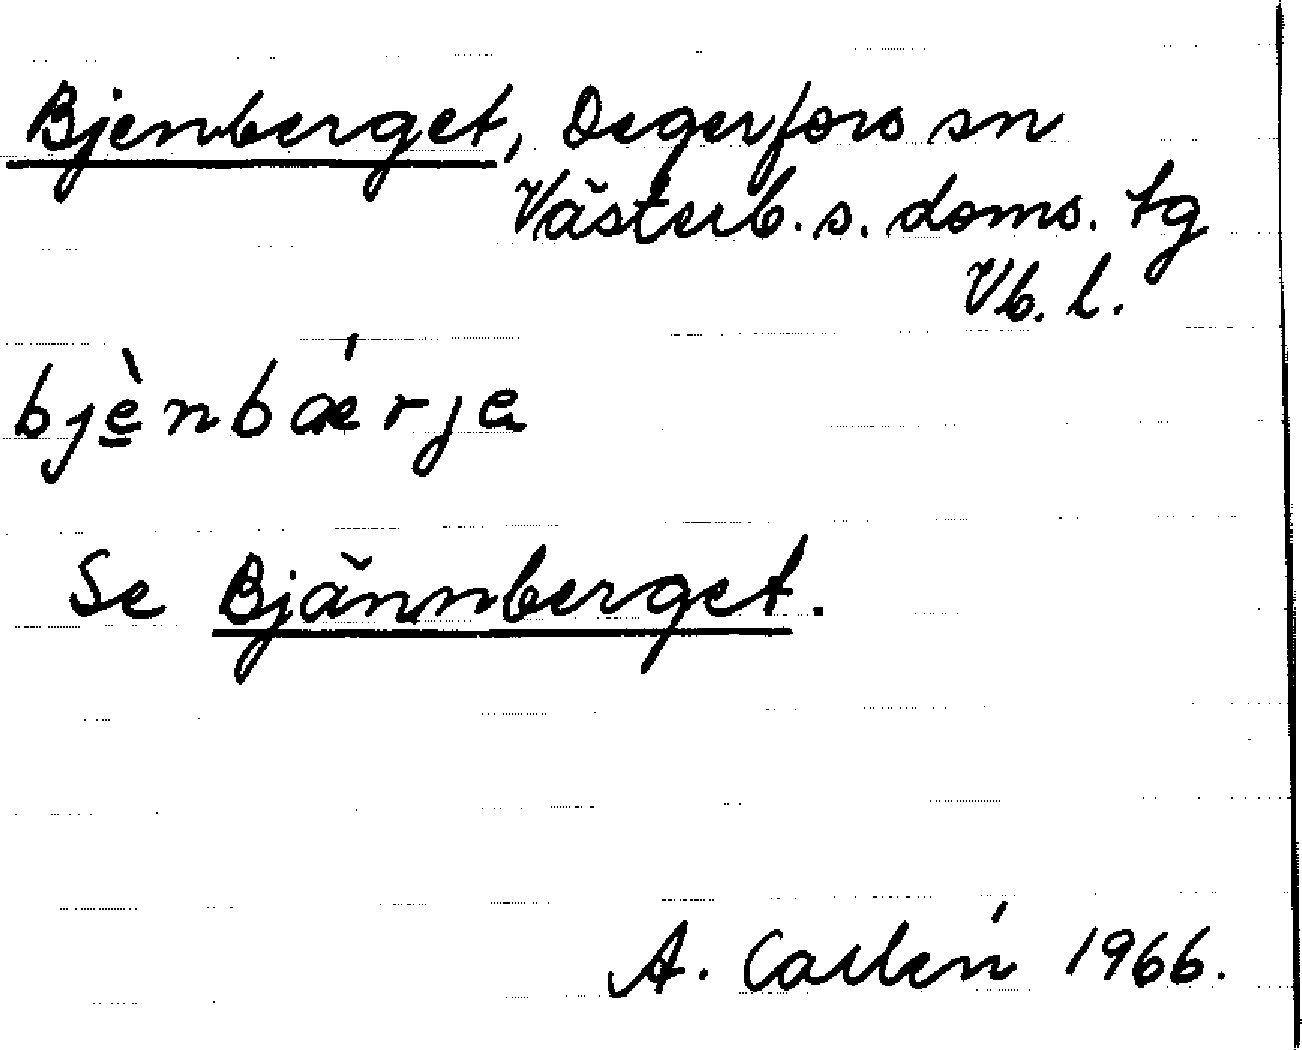 Bjenberget, Degerfors sn
Västerb. s. doms. tg
Vb. l.
bjè̱nbǽrjɐ
Se Bjännberget.
A. Carlén 1966.